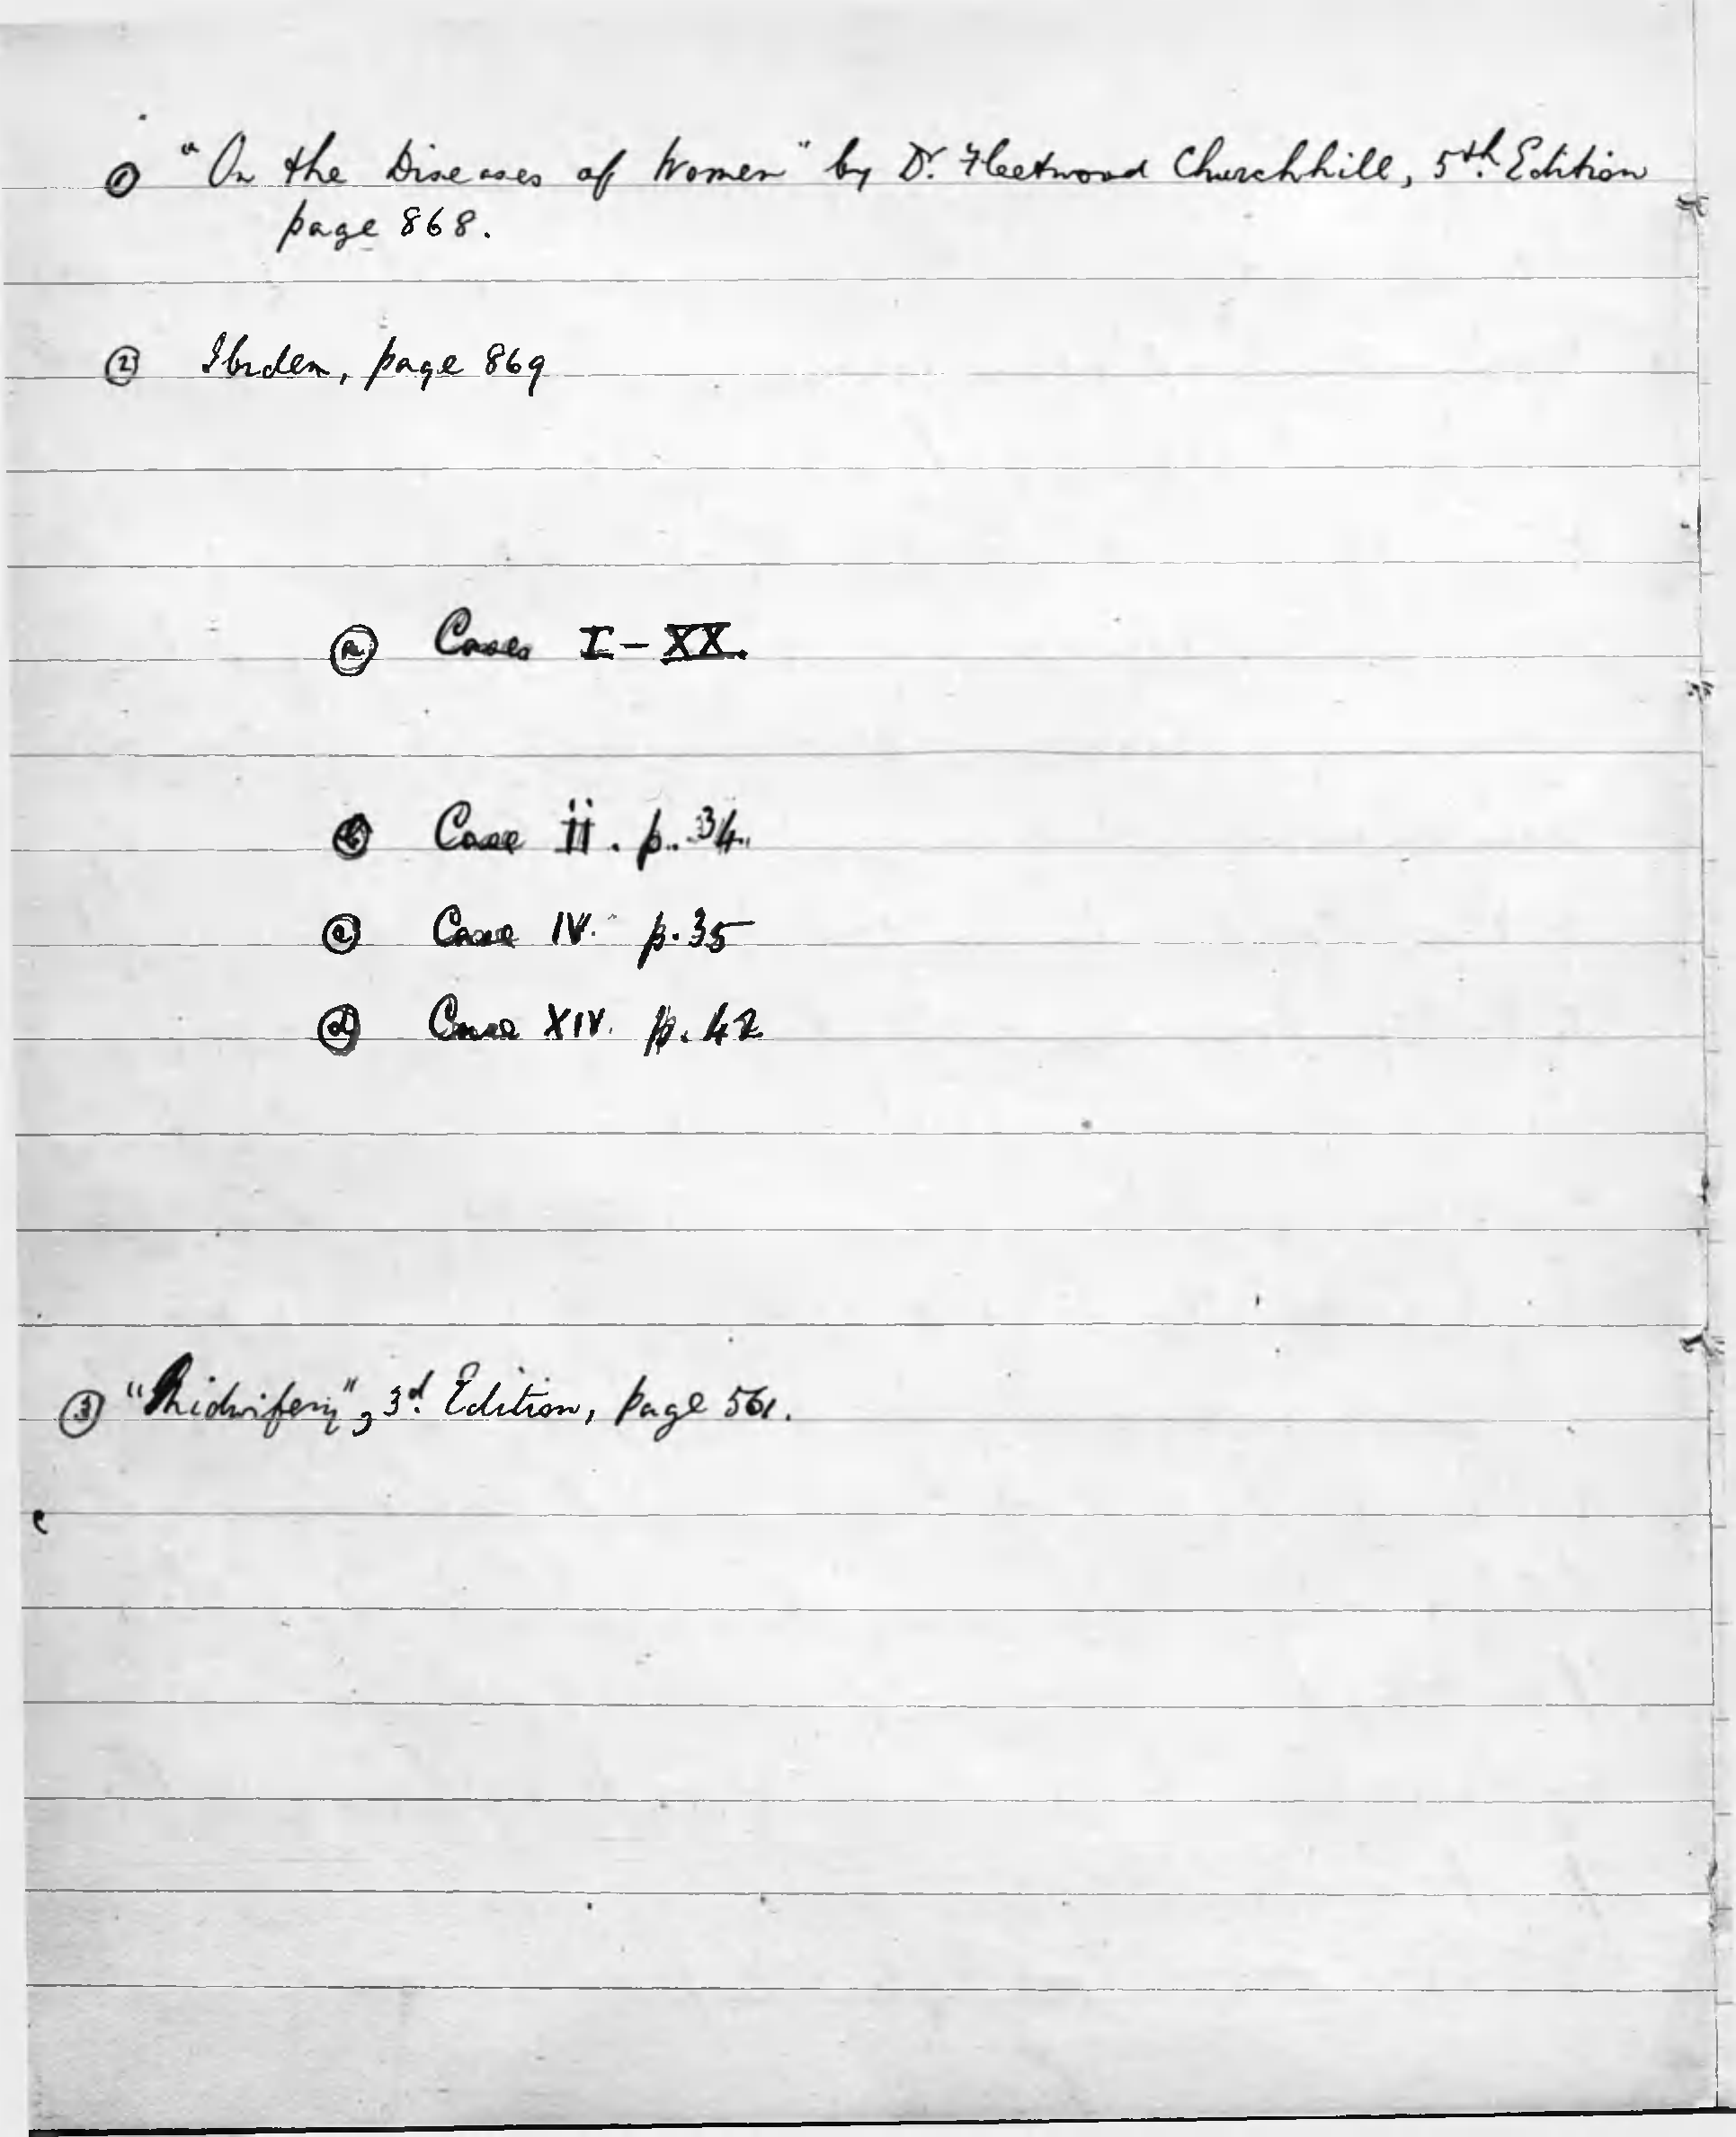 ① "On the Diseases of Women" by Dr. Fleetwood Churchhill, 5th. Edition
page 868.
② Ibidem, page 869
ⓐ Cases I - XX.
ⓑ Case ii. p. 34.
ⓒ Case IV. p. 35
ⓓ Case XIV. p. 42
③ "Midwifery", 3d. Edition, page 561.